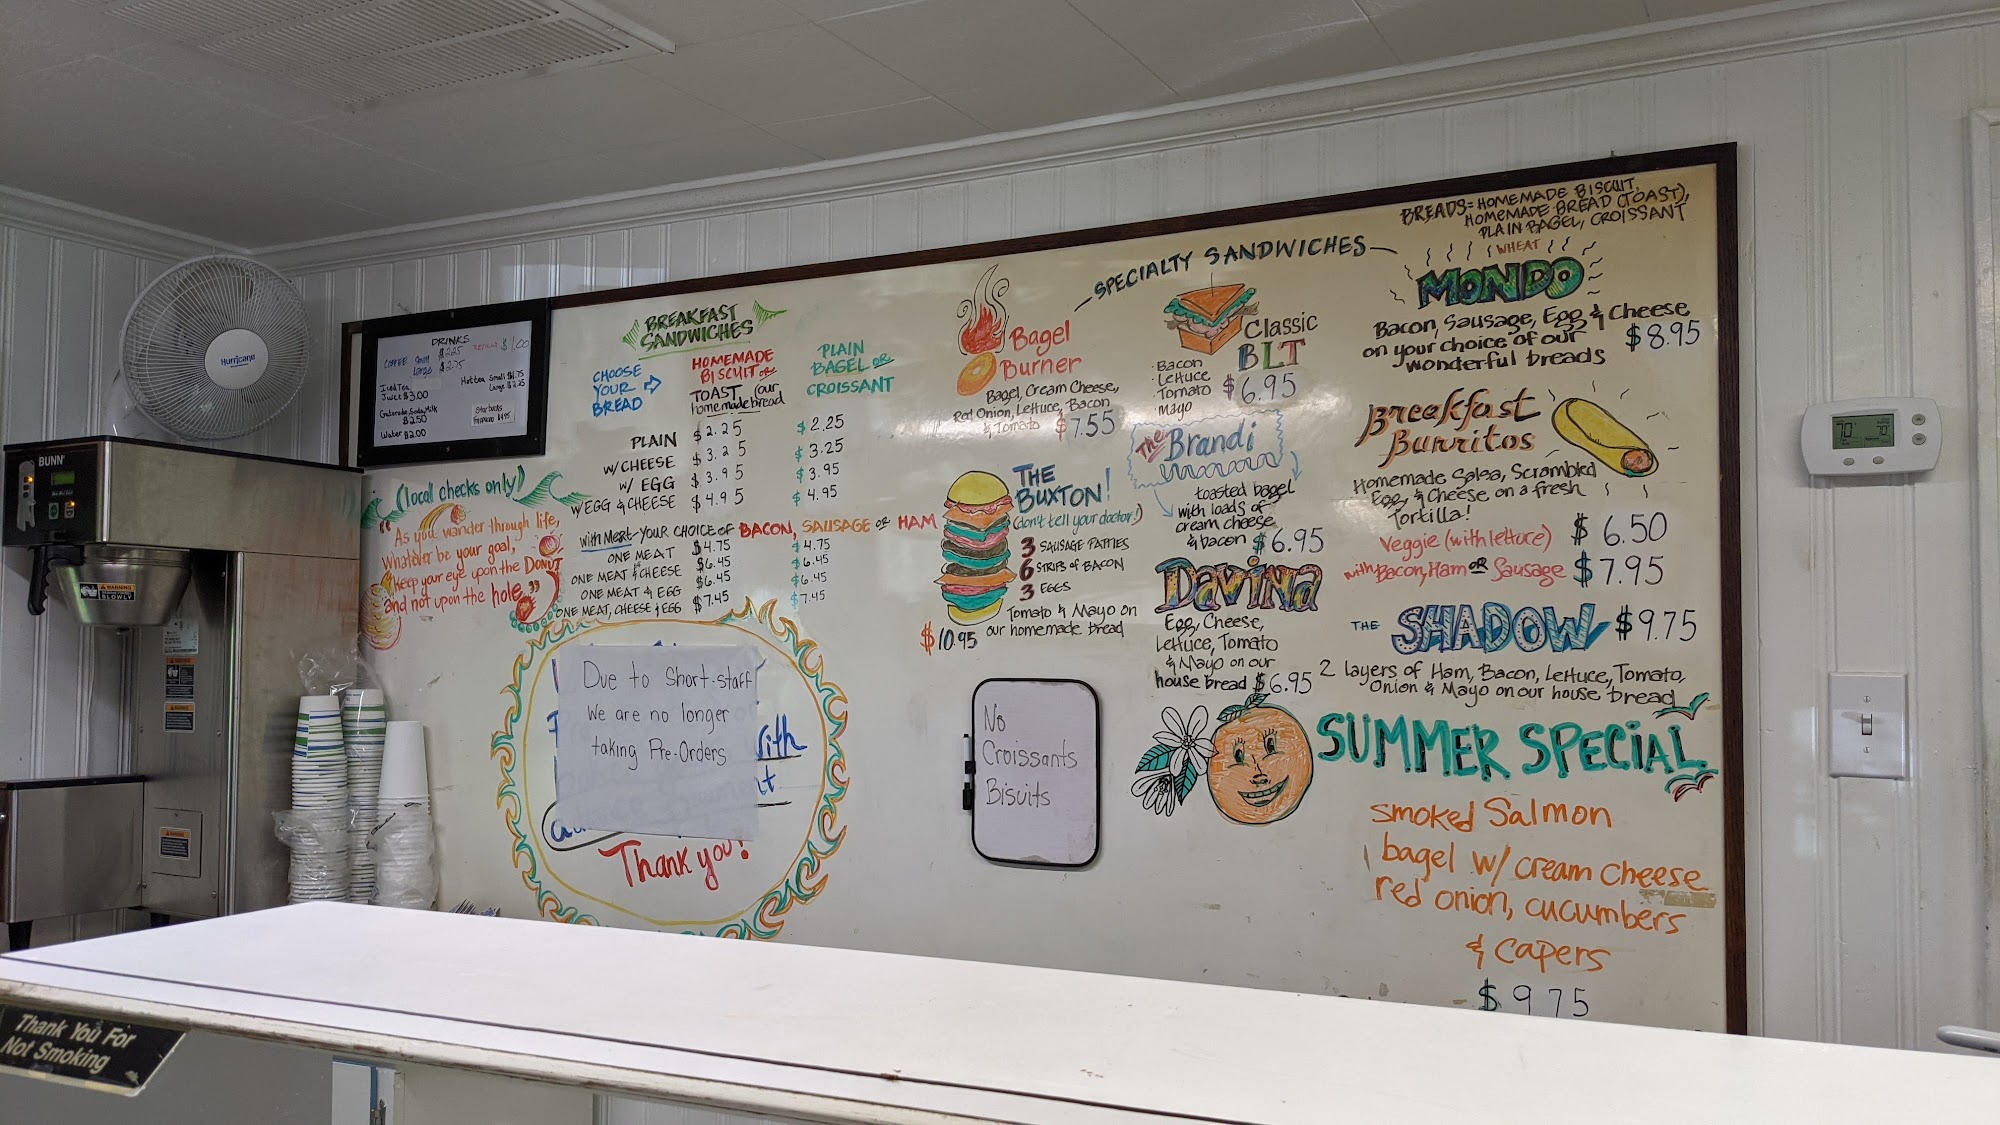 Hurricane
BUNN
WARNING
WARNING
WARNING
WARNING
Thank You For
Not Smoking
DRINKS
COFFEE Small $2.25 Refills $1.00
Large $2.75
Iced Tea
Juice $3.00
Hot tea Small $1.75
Large $2.25
Gatorade, Soda, Milk
$2.50
Water $2.00
Starbucks
(local checks only)
"As you wander through life,
Whatever be your goal,
keep your eye upon the DONUT
and not upon the hole"
BREAKFAST
SANDWICHES
CHOOSE
YOUR
BREAD
HOMEMADE
BISCUIT OR
TOAST (our
homemade bread)
PLAIN
BAGEL OR
CROISSANT
PLAIN $2.25 $2.25
W/CHEESE $3.25 $3.25
W/ EGG $3.95 $3.95
W/EGG & CHEESE $4.95 $4.95
with Meat-YOUR CHOICE OF BACON, SAUSAGE OR HAM
ONE MEAT $4.75 $4.75
ONE MEAT & CHEESE $6.45 $6.45
ONE MEAT & EGG $6.45 $6.45
ONE MEAT, CHEESE & EGG $7.45 $7.45
Due to Short-staff
We are no longer
taking Pre-Orders
Thank you!
SPECIALTY SANDWICHES
Bagel
Burner
Bagel, Cream Cheese,
Red Onion, Lettuce, Bacon
& Tomato $7.55
THE
BUXTON!
(don't tell your doctor!)
3 SAUSAGE PATTIES
6 STRIPS OF BACON
3 EGGS
Tomato & Mayo on
our homemade bread
$10.95
No
Croissants
Biscuits
Classic
BLT
Bacon
Lettuce
Tomato
Mayo
$6.95
The Brandi
toasted bagel
with loads of
cream cheese
& bacon $6.95
DAVINA
Egg, Cheese,
Lettuce, Tomato
& Mayo on our
house bread $6.95
BREADS = HOMEMADE BISCUIT,
HOMEMADE BREAD (TOAST),
PLAIN BAGEL, CROISSANT
WHEAT
MONDO
Bacon, Sausage, Egg & Cheese
on your choice of our
wonderful breads
$8.95
Breakfast
Burritos
Homemade Salsa, Scrambled
Egg, & Cheese on a fresh
Tortilla!
Veggie (with lettuce) $6.50
with Bacon, Ham OR Sausage $7.95
THE SHADOW $9.75
2 layers of Ham, Bacon, Lettuce, Tomato,
Onion & Mayo on our house bread
SUMMER SPECIAL
Smoked Salmon
bagel w/ cream cheese
red onion, cucumbers
& capers
$9.75
70
70